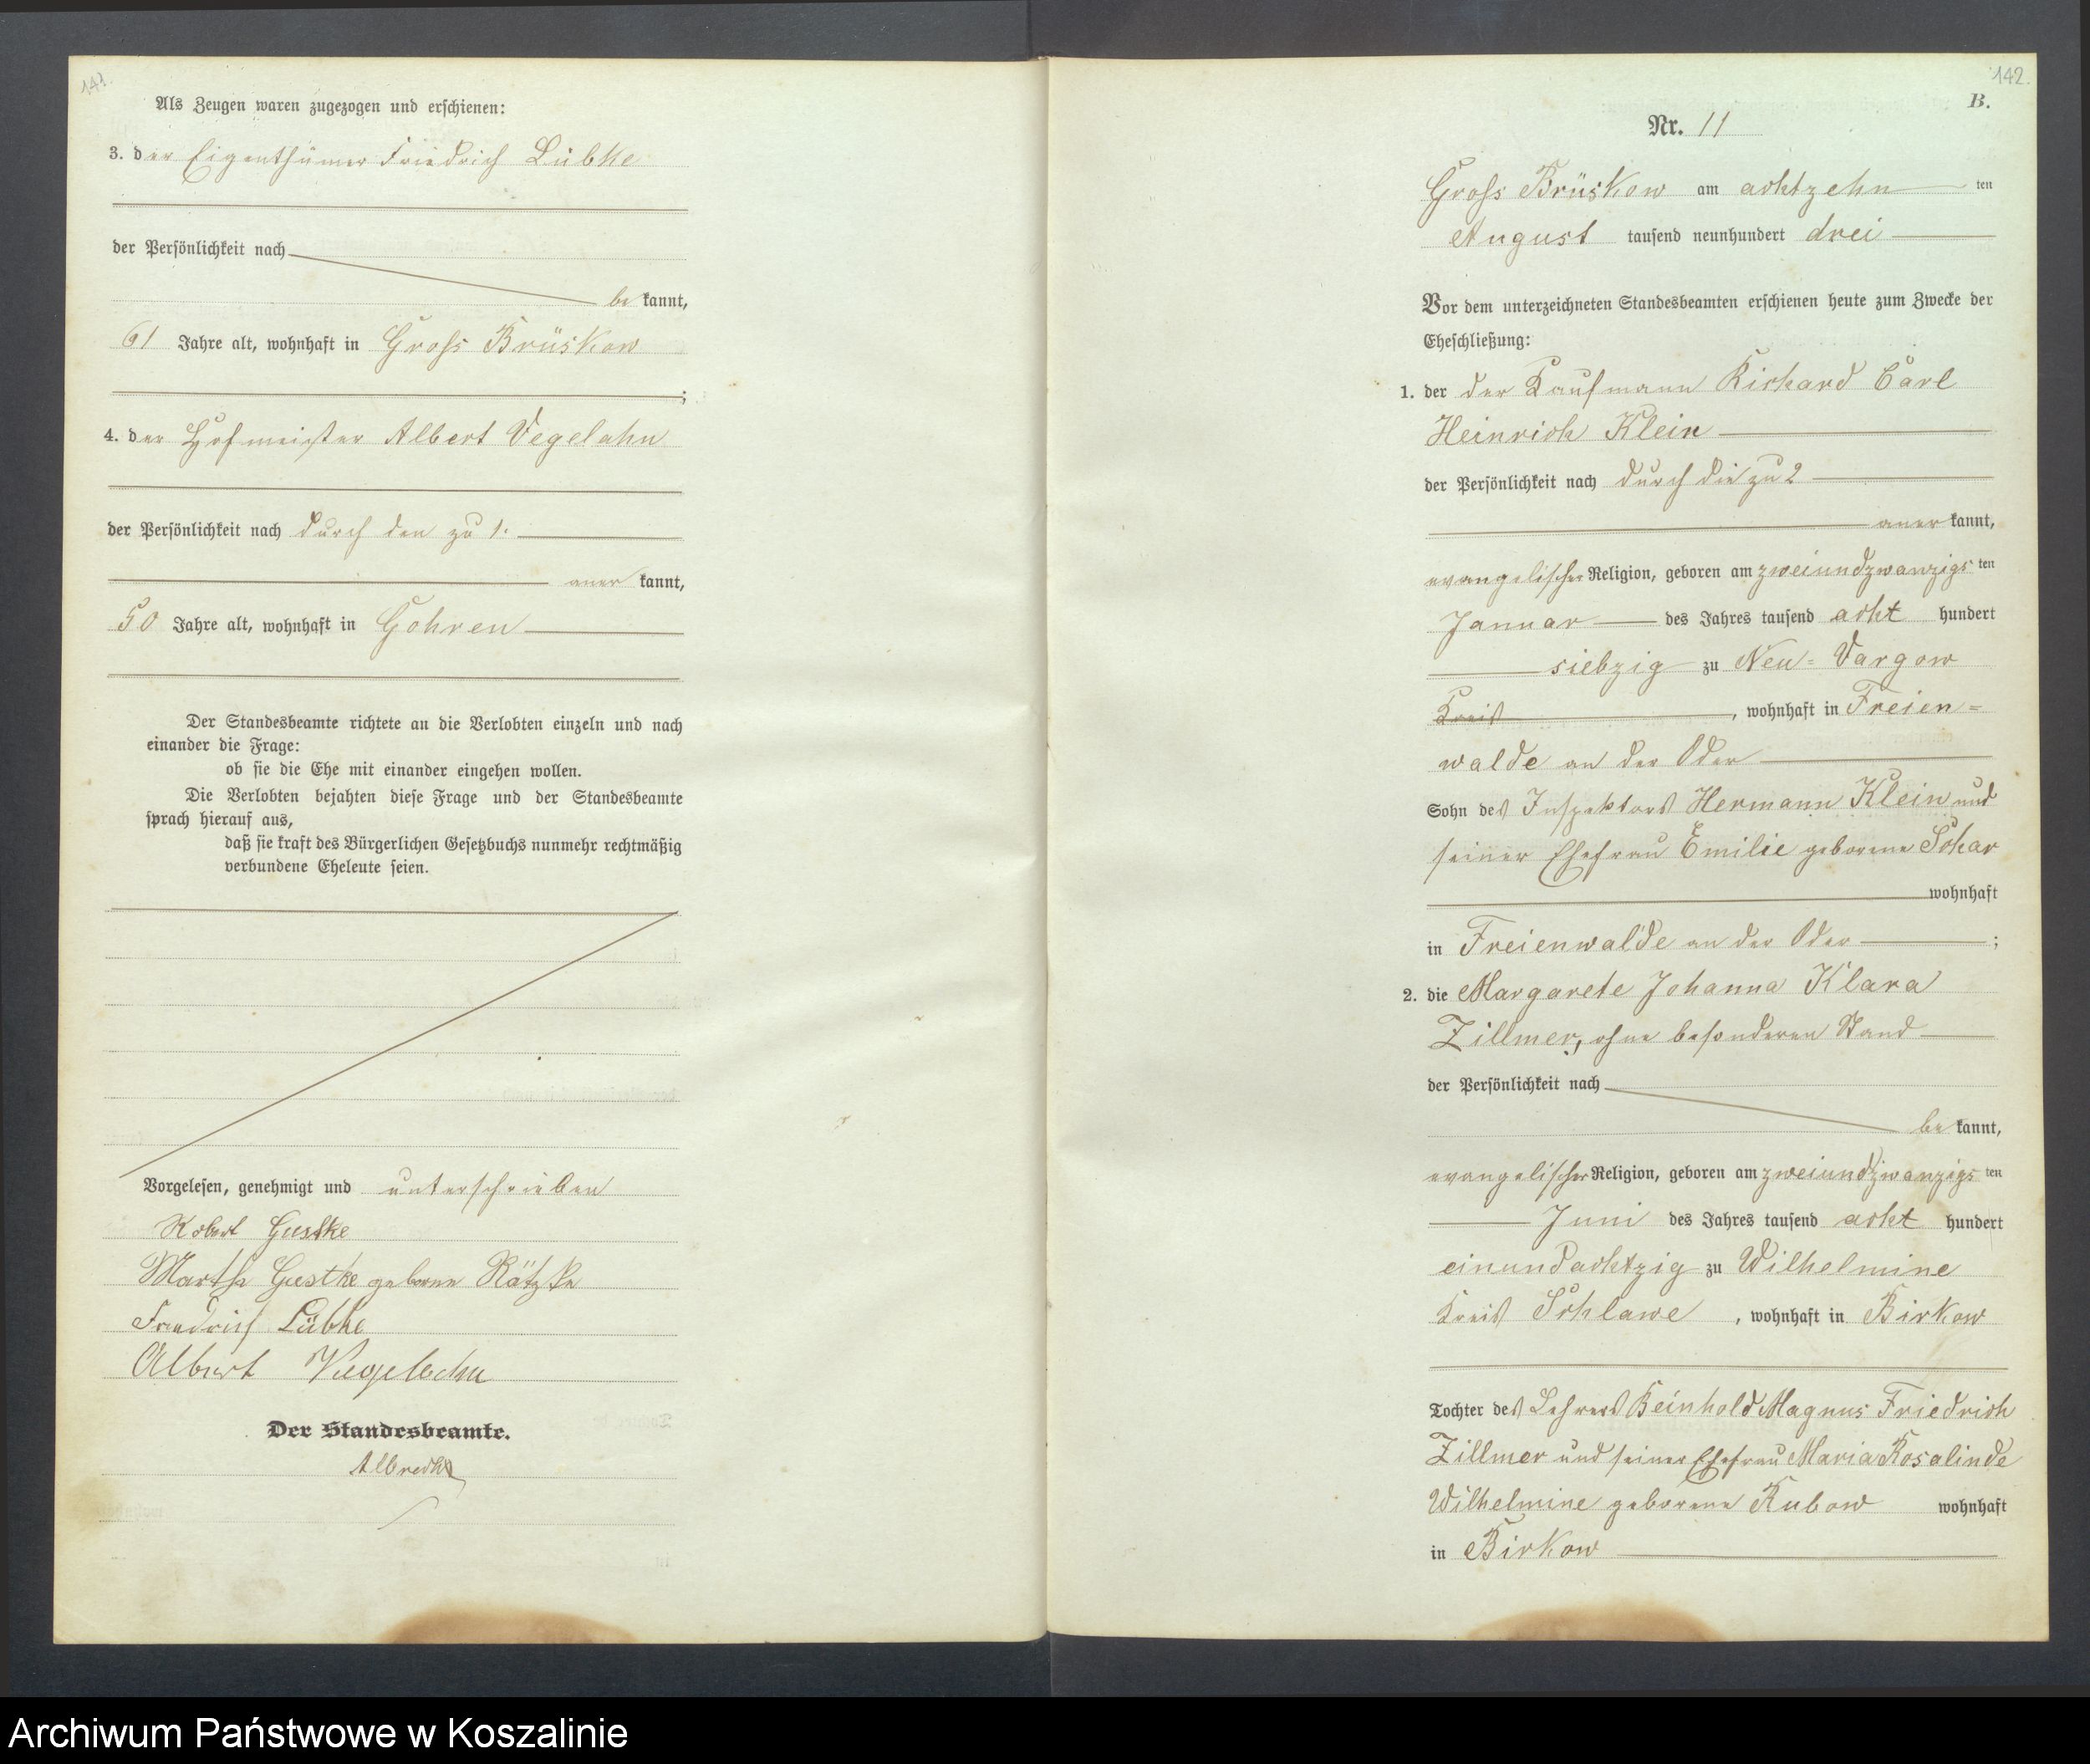 141.
Als Zeugen waren zugezogen und erschienen:
3. der Eigenthümer Friedrich Lübke
der Persönlichkeit nach
be kannt,
61 Jahre alt, wohnhaft in Groß Brüskow
;
4. der Hofmeister Albert Vegelahn
der Persönlichkeit nach durch den zu 1.
aner kannt,
50 Jahre alt, wohnhaft in Gohren
Der Standesbeamte richtete an die Verlobten einzeln und nach
einander die Frage:
ob sie die Ehe mit einander eingehen wollen.
Die Verlobten bejahten diese Frage und der Standesbeamte
sprach hierauf aus,
daß sie kraft des Bürgerlichen Gesetzbuchs nunmehr rechtmäßig
verbundene Eheleute seien.
Vorgelesen, genehmigt und unterschrieben
Robert Gustke
Martha Gustke geborene Rätzke
Friedrich Lübke
Albert Vegelahn
Der Standesbeamte.
Albrecht
142.
B.
Nr. 11
Groß Brüskow am achtzehn ten
August tausend neunhundert drei
Vor dem unterzeichneten Standesbeamten erschienen heute zum Zwecke der
Eheschließung:
1. der der Kaufmann Richard Carl
Heinrich Klein
der Persönlichkeit nach durch die zu 2
aner kannt,
evangelischer Religion, geboren am zweiundzwanzigs ten
Januar des Jahres tausend acht hundert
siebzig zu Neu=Vargow
Kreis , wohnhaft in Freien=
walde an der Oder
Sohn des Inspektors Hermann Klein und
seiner Ehefrau Emilie geborene Schar
wohnhaft
in Freienwalde an der Oder ;
2. die Margarete Johanna Klara
Zillmer, ohne besonderen Stand
der Persönlichkeit nach
be kannt,
evangelischer Religion, geboren am zweiundzwanzigs ten
Juni des Jahres tausend acht hundert
einundachtzig zu Wilhelmine
Kreis Schlawe , wohnhaft in Birkow
Tochter des Lehrers Reinhold Magnus Friedrich
Zillmer und seiner Ehefrau Maria Rosalinde
Wilhelmine geborene Rubow wohnhaft
in Birkow
Archiwum Państwowe w Koszalinie